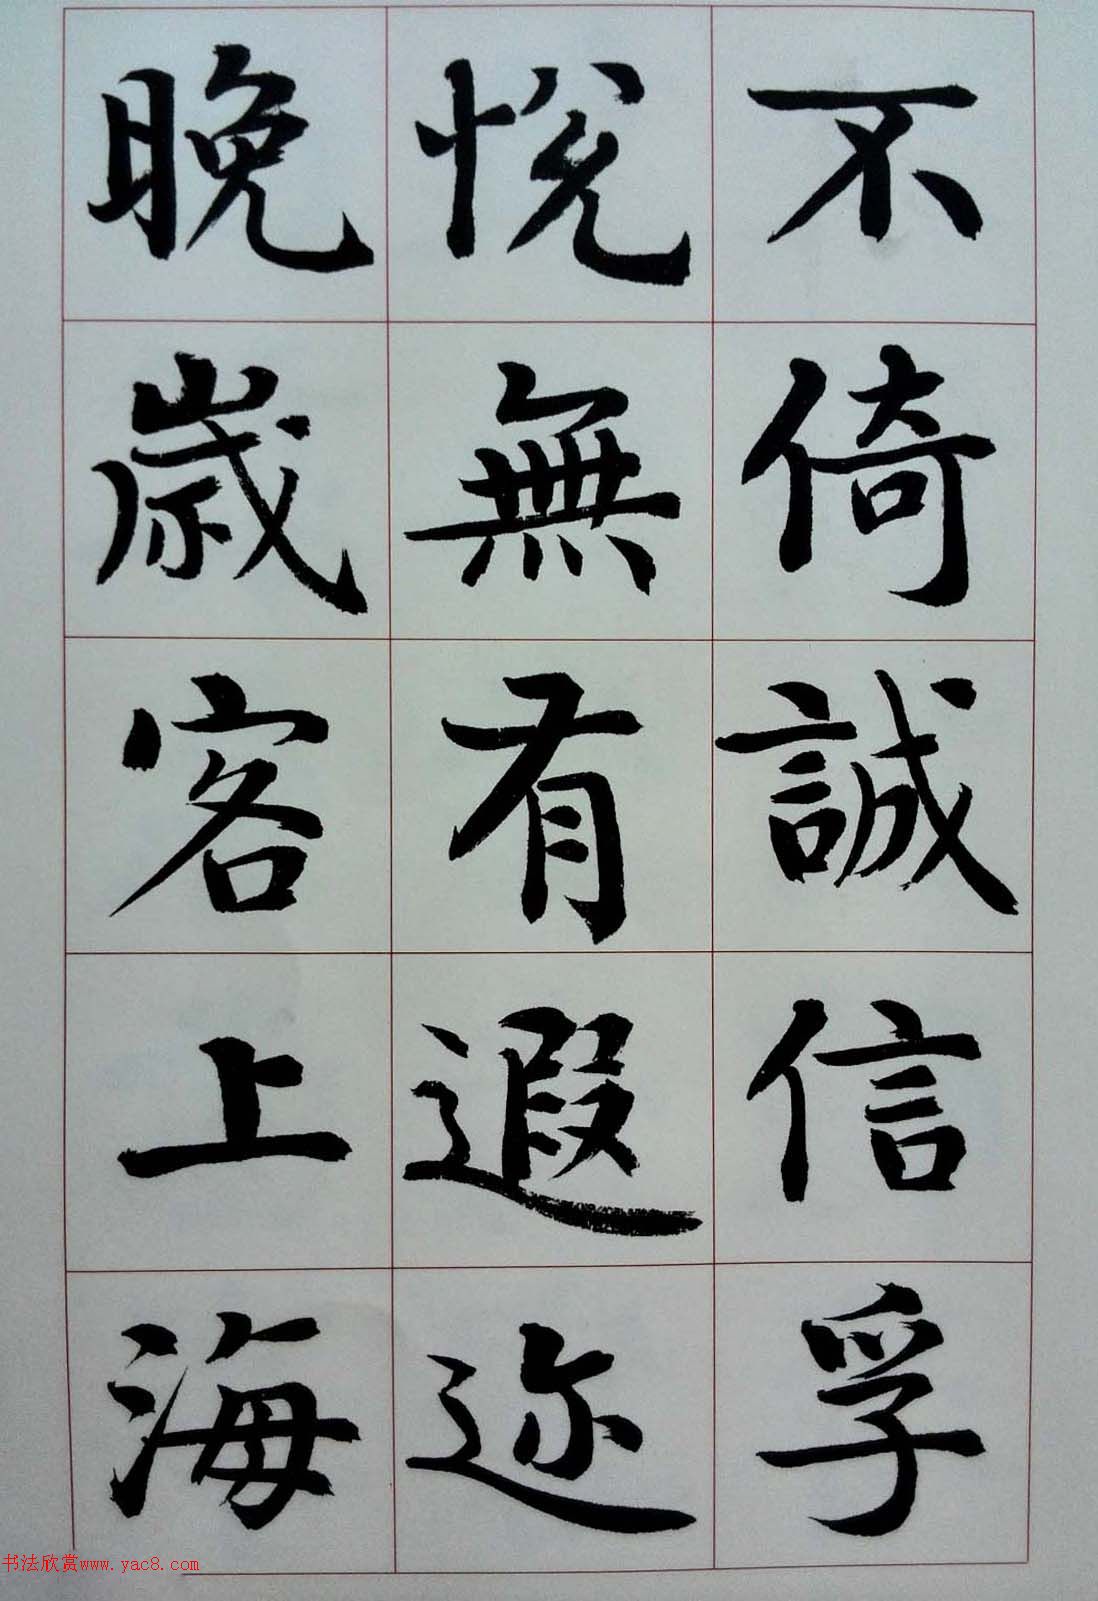 不倚誠信孚
悅無有遐迩
晚歲客上海
书法欣赏www.yac8.com